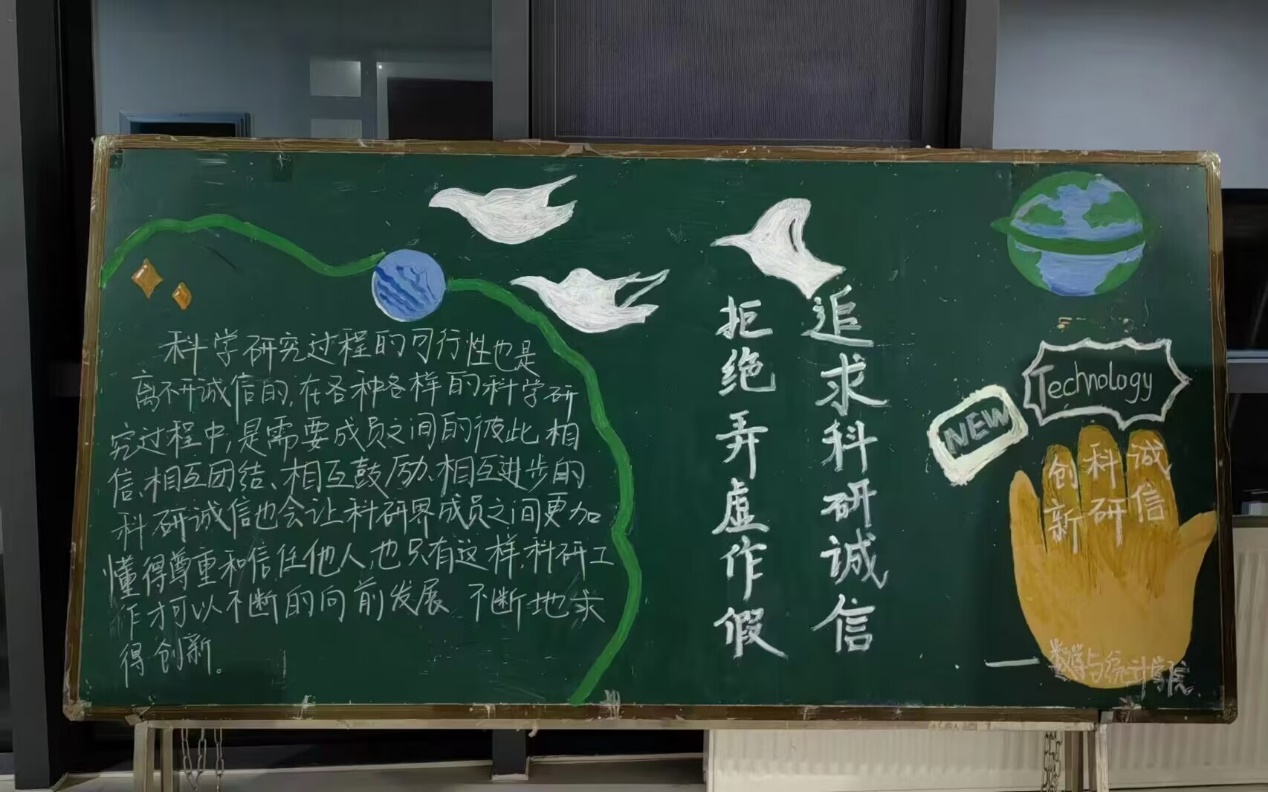 科学研究过程的可行性也是
离不开诚信的,在各种各样的科学研
究过程中,是需要成员之间的彼此相
信、相互团结、相互鼓励、相互进步的
科研诚信也会让科研界成员之间更加
懂得尊重和信任他人,也只有这样,科研工
作才可以不断的向前发展 不断地求
得创新。
追求科研诚信
拒绝弄虚作假
NEW
Technology
诚信
科研
创新
——数学与统计学院